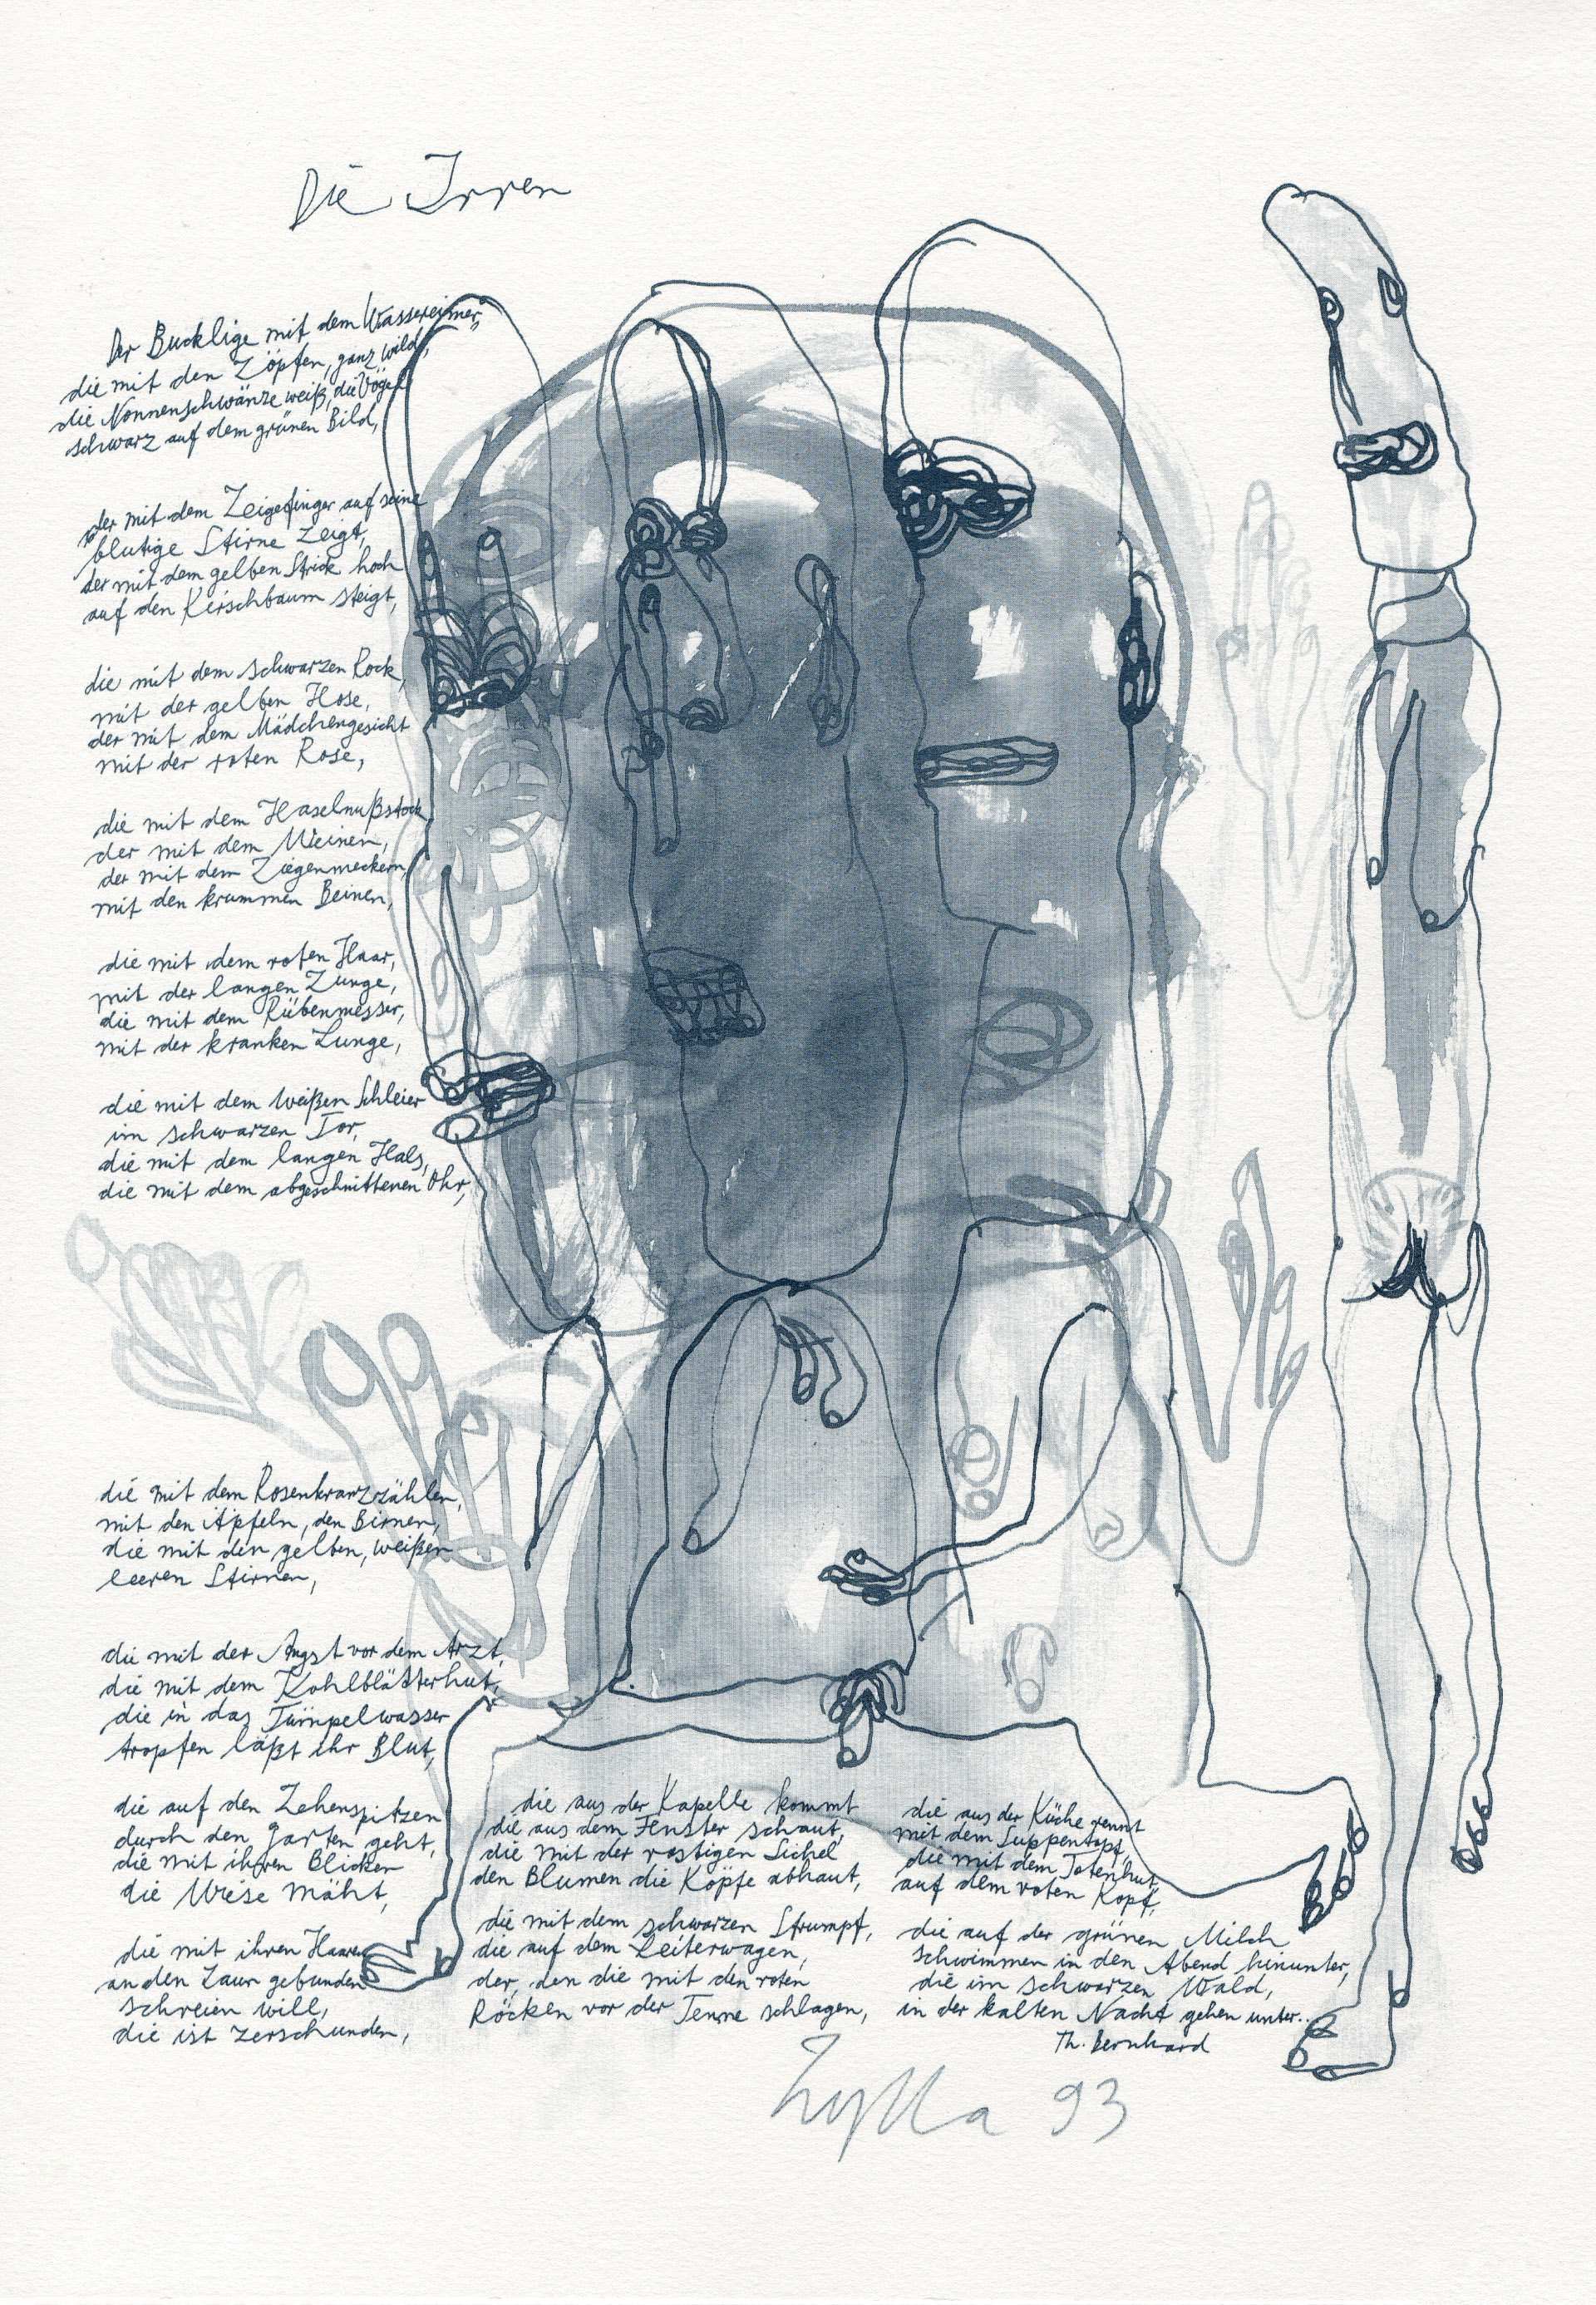 Die Irren
Der Bucklige mit dem Wassereimer,
die mit den Zöpfen, ganz wild,
die Nonnenschwänze weiß, die Vögel
schwarz auf dem grünen Bild,
der mit dem Zeigefinger auf seine
blutige Stirne zeigt,
der mit dem gelben Strick hoch
auf den Kirschbaum steigt,
die mit dem schwarzen Rock,
mit der gelben Hose,
der mit dem Mädchengesicht
mit der roten Rose,
die mit dem Haselnußstock
der mit dem Weinen,
der mit dem Ziegenmeckern,
mit den krummen Beinen,
die mit dem roten Haar,
mit der langen Zunge,
die mit dem Rübenmesser,
mit der kranken Lunge,
die mit dem weißen Schleier
im schwarzen Tor,
die mit dem langen Hals,
die mit dem abgeschnittenen Ohr,
die mit dem Rosenkranzzählen,
mit den Äpfeln, den Birnen,
die mit den gelben, weißen
leeren Stirnen,
die mit der Angst vor dem Arzt,
die mit dem Kohlblätterhut,
die in das Tümpelwasser
tropfen läßt ihr Blut,
die auf den Zehenspitzen
durch den Garten geht,
die mit ihren Blicken
die Wiese mäht,
die mit ihren Haaren
an den Zaun gebunden
schreien will,
die ist zerschunden,
die aus der Kapelle kommt
die aus dem Fenster schaut,
die mit der rostigen Sichel
den Blumen die Köpfe abhaut,
die mit dem schwarzen Strumpf,
die auf dem Leiterwagen,
der, den die mit den roten
Röcken vor der Tenne schlagen,
die aus der Küche rennt
mit dem Suppentopf,
die mit dem Totenhut,
auf dem roten Kopf,
die auf der grünen Milch
schwimmen in den Abend hinunter,
die im schwarzen Wald,
in der kalten Nacht gehen unter...
Th. Bernhard
Zylla 93